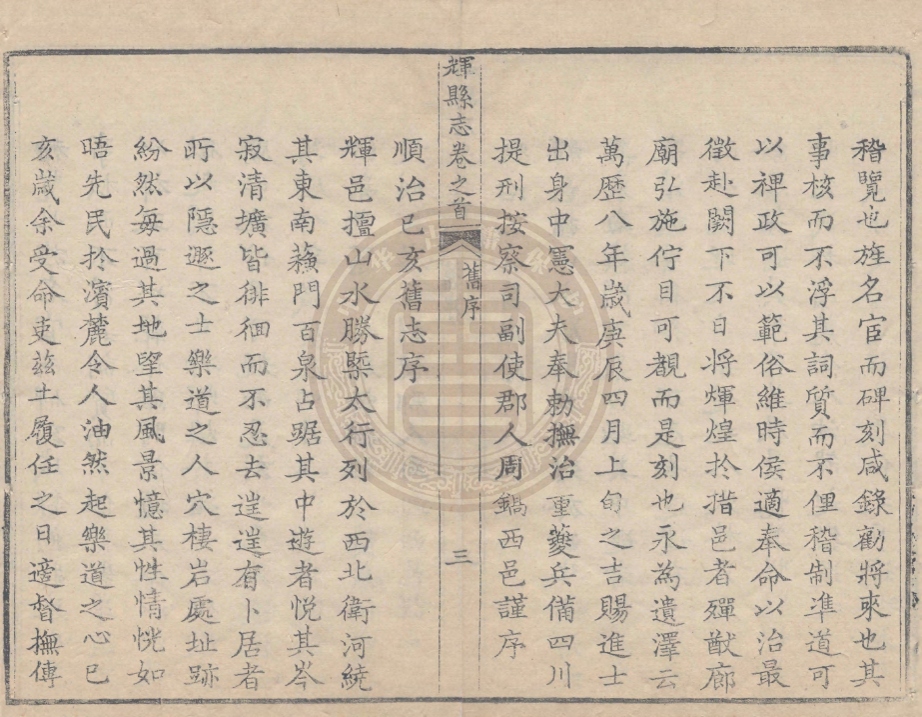 稽覽也旌名宦而碑刻咸錄勸將來也其
事核而不浮其詞質而不俚稽制準道可
以裨政可以範俗維時侯適奉命以治最
徵赴闕下不日將煇煌於揩邑者殫猷廊
廟弘施佇目可覩而是刻也永為遺澤云
萬歷八年歲庚辰四月上旬之吉賜進士
出身中憲大夫奉勅撫治重夔兵備四川
提刑按察司副使郡人周鍋西邑謹序
輝縣志卷之首
舊序
三
順治己亥舊志序
輝邑擅山水勝槩太行列於西北衛河繞
其東南蘓門百泉占踞其中遊者悅其岑
寂清壙皆徘徊而不忍去遑遑有卜居者
所以隱遯之士樂道之人穴棲岩處址跡
紛然每過其地望其風景憶其性情恍如
晤先民於濱麓令人油然起樂道之心己
亥歲余受命吏兹土履任之日適督撫傳